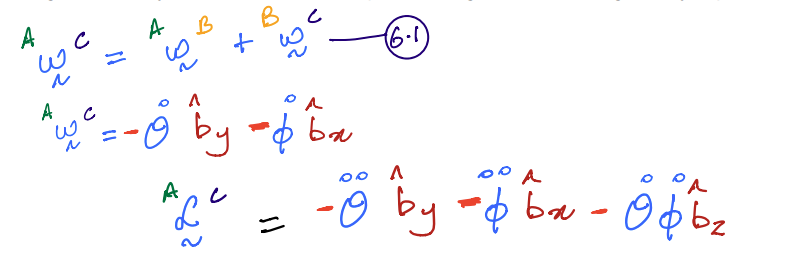 ᴬω̰ꟲ = ᴬω̰ᴮ + ᴮω̰ꟲ — (6.1)
ᴬω̰ꟲ = -θ̇ b̂y - φ̇ b̂x
ᴬα̰ꟲ = -θ̈ b̂y - φ̈ b̂x - θ̇ φ̇ b̂z